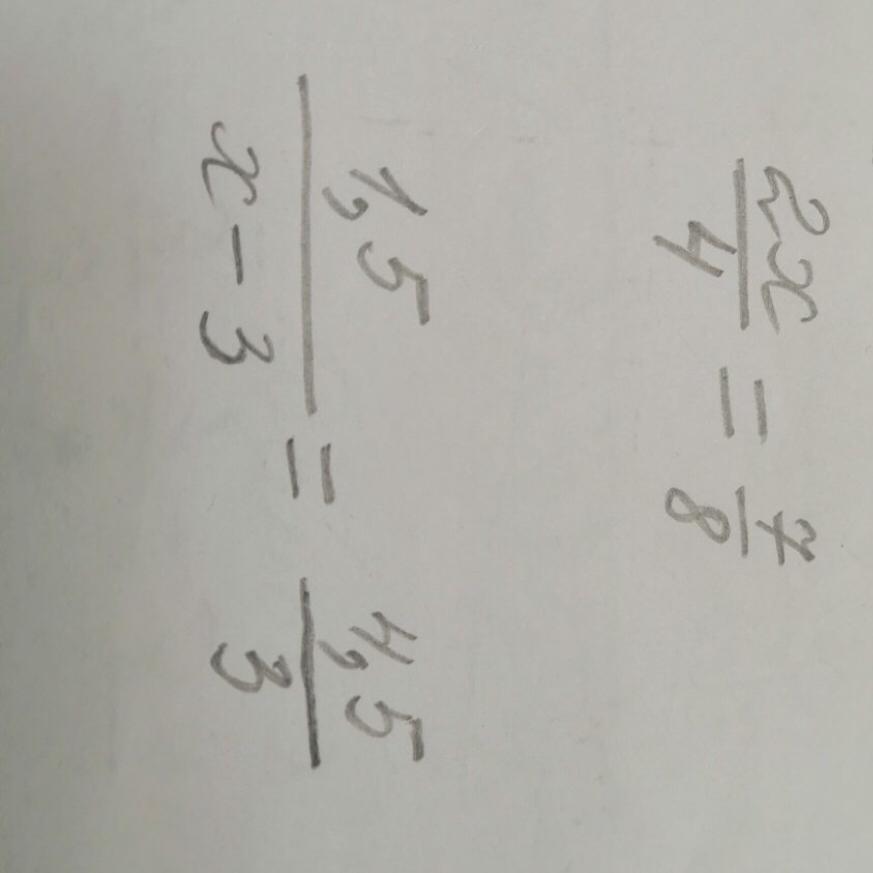 2x/4 = 7/8
1,5/x - 3 = 4,5/3